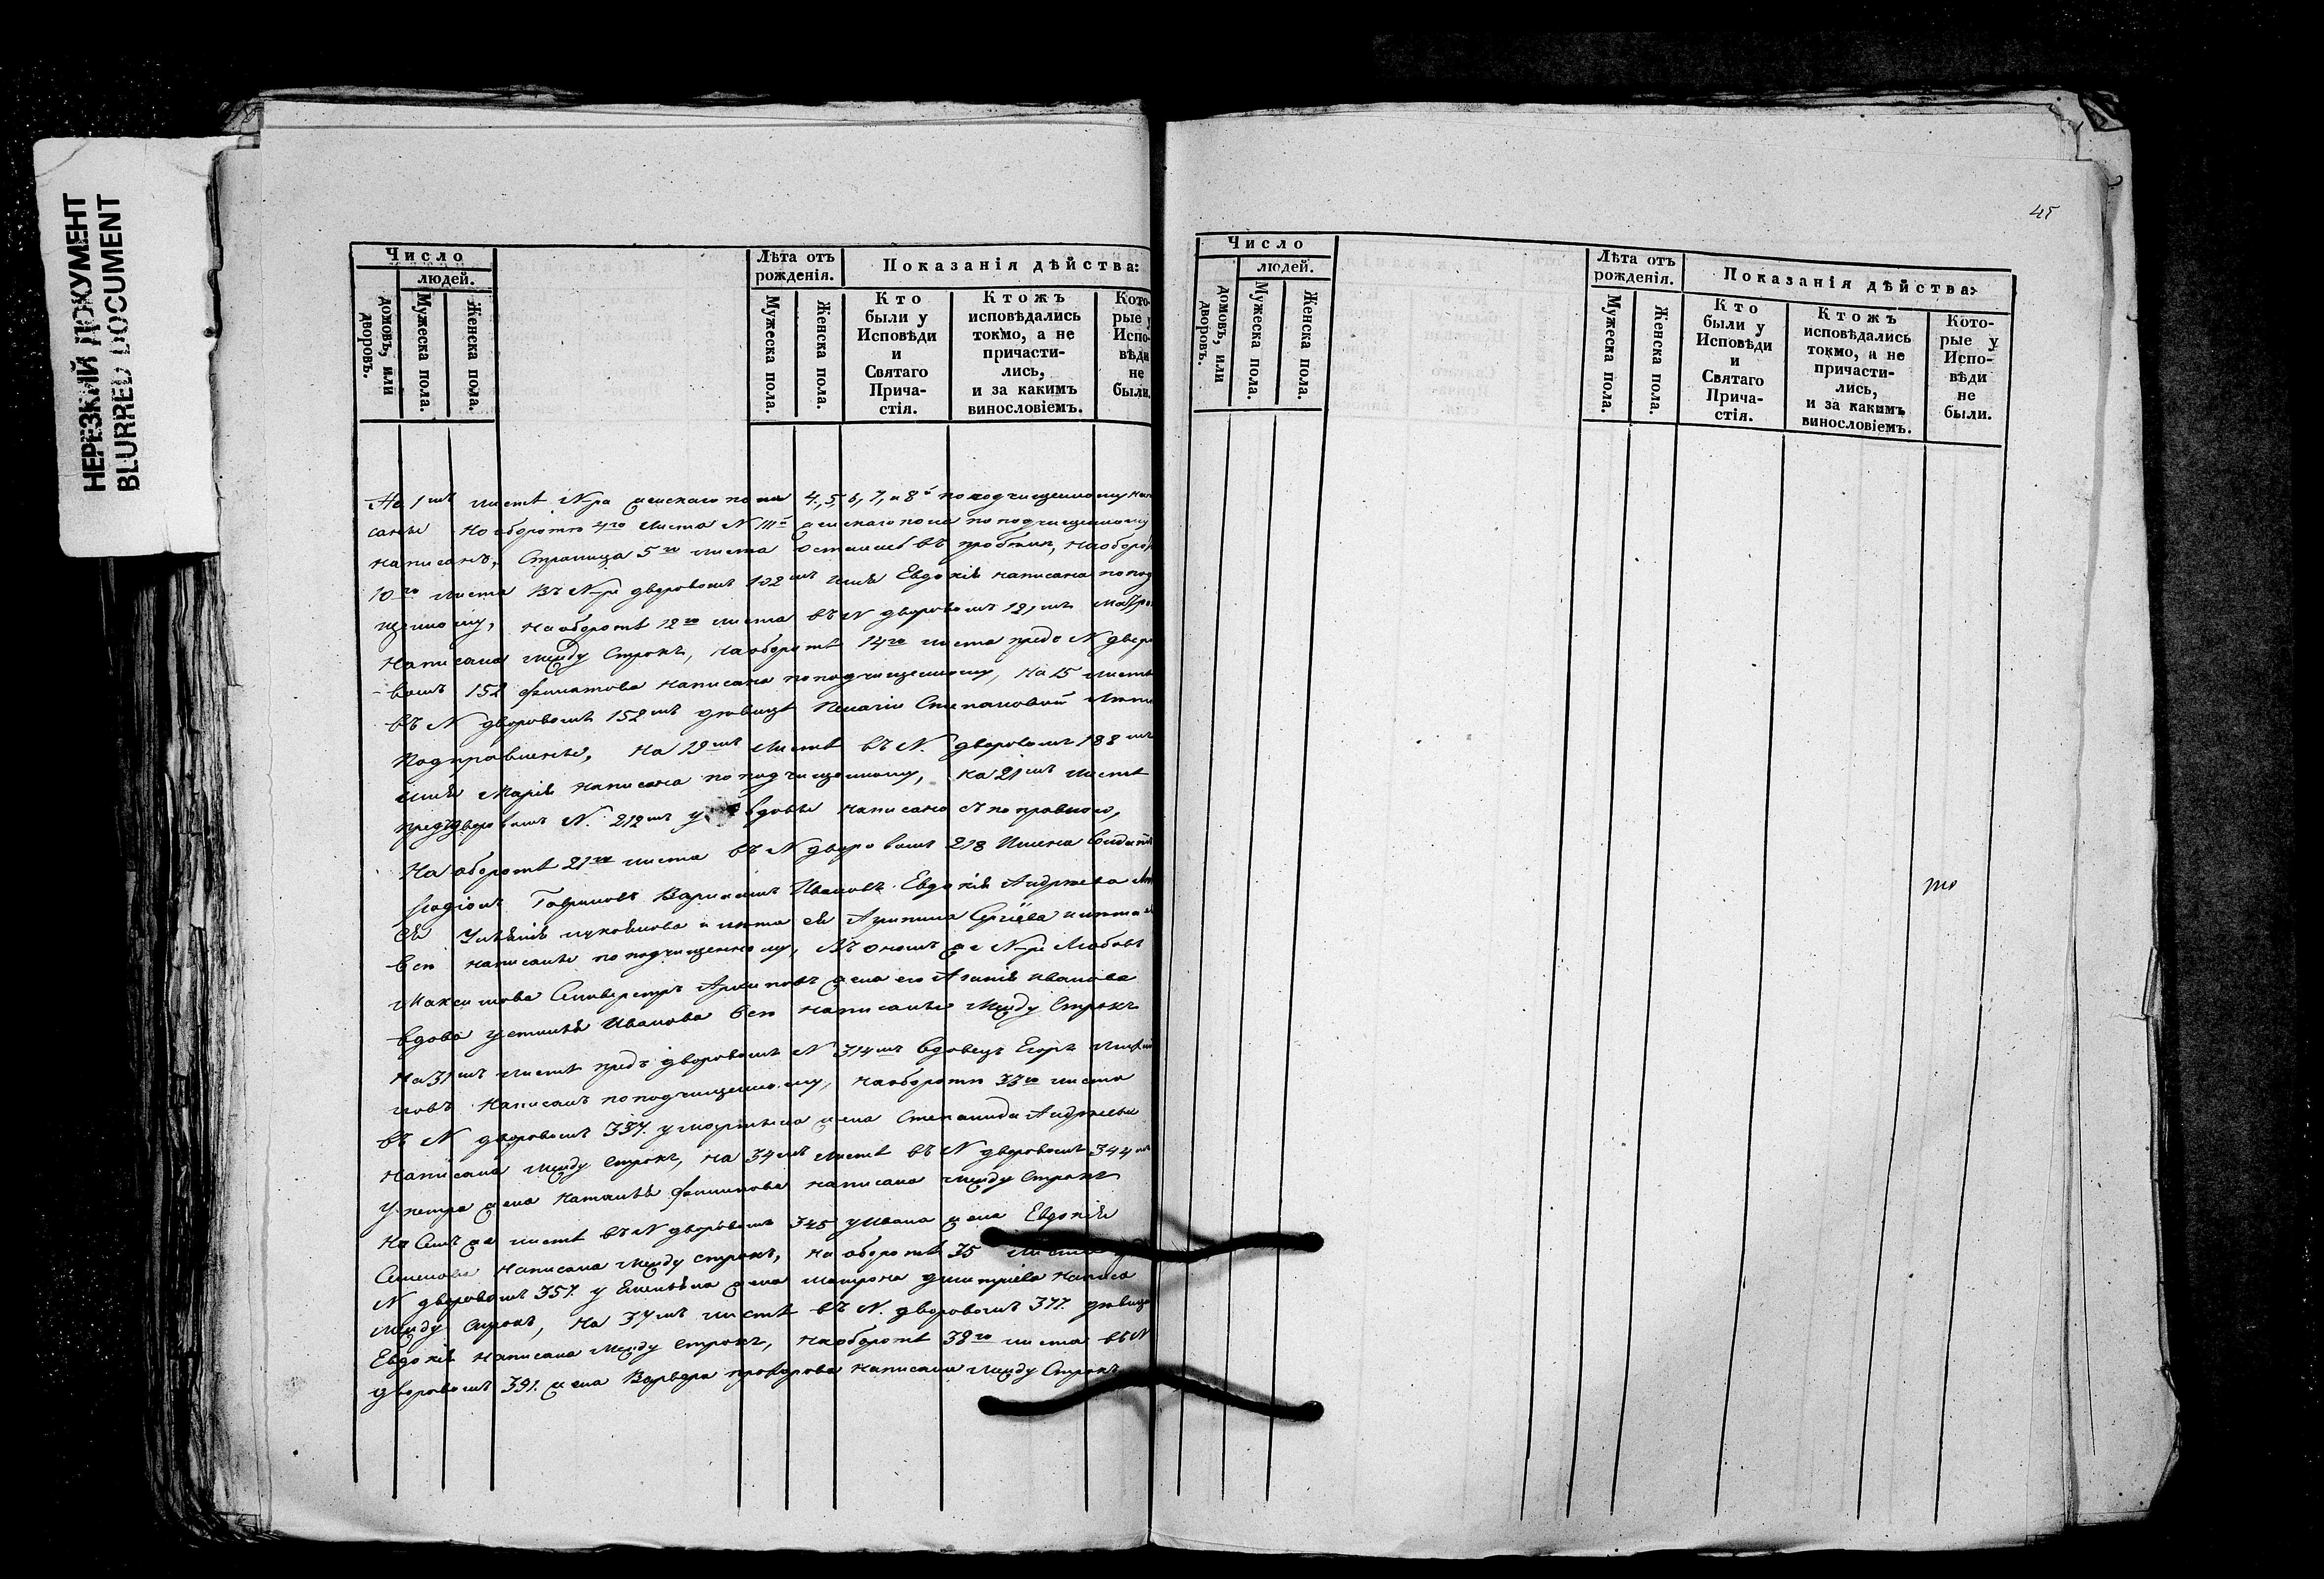 НЕРЕЗКИЙ ДОКУМЕНТ
BLURRED DOCUMENT
Число
людей.
домовъ, или дворовъ.
Мужеска пола.
Женска пола.
Лѣта отъ рожденія.
Мужеска пола.
Женска пола.
Показанія дѣйства:
Кто были у Исповѣди и Святаго Прича-стія.
Ктожъ исповѣдались токмо, а не причасти-лись, и за какимъ винословіемъ.
Кото-рые у Испо-вѣди не были.
На 1мъ листѣ N-ра женскаго пола 4, 5, 6, 7, и 8й по подчищенному напи
саны На оборотѣ 4го листа N женскаго пола по подчищенному
написанъ, Страница 5го листа осталась въ пробѣлѣ, на оборот
10го листа Въ N-рѣ дворовомъ 102мъ имя Евдокія написана по под
щенному, на оборотѣ 12го листа въ N дворовомъ 121мъ Матро
написана между строкъ, на оборотѣ 14го листа предъ N дворо
вомъ 152 Филатова написана по подчищенному, на 15 листѣ
въ N дворовомъ 152мъ у дѣвицы Пелагіи Степановой лѣта
подправлены, на 19мъ листѣ въ N. дворовомъ 188мъ
имя Марія написана по подчищенному, на 21мъ листѣ
предъ дворовымъ N. 212мъ у вдовы написано съ поправкою,
На оборотѣ 21го листа въ N дворовомъ 218 Имена
Родіонъ Гавриловъ Иванова Евдокія Андреева
ея Лукоянова и лѣта ея Агрипина Сергіева и лѣта
всѣ написаны по подчищенному, Въ ономъ же N-рѣ Любовь
Максимова Сильверстръ Архиповъ жена его Агапія Иванова
вдова Устинья Иванова всѣ написаны между строкъ
на 31мъ листѣ предъ дворовымъ N 314мъ вдовецъ Егоръ
новъ написанъ по подчищенному, на оборотѣ 33го листа
въ N дворовомъ 337. у Мартына жена Степанида Андреева
написана между строкъ, на 34мъ листѣ въ N дворовомъ 344мъ
у Петра жена Наталья Филипова написана между строкъ
на семъ же листѣ въ N дворовомъ 345 у Ивана жена Евдокія
Семенова написана между строкъ, на оборотѣ 35 листа
N дворовомъ 357. у Емельяна жена Матрона Дмитріева написа
между строкъ, на 37мъ листѣ въ N. дворовомъ 377. дѣвица
Евдокія написана между строкъ, на оборотѣ 38го листа въ N
дворовомъ 391. жена Варвара Прохорова написана между строкъ
45
Число
людей.
домовъ, или дворовъ.
Мужеска пола.
Женска пола.
Лѣта отъ рожденія.
Мужеска пола.
Женска пола.
Показанія дѣйства:
Кто были у Исповѣди и Святаго Прича-стія.
Ктожъ исповѣдались токмо, а не причасти-лись, и за какимъ винословіемъ.
Кото-рые у Испо-вѣди не были.